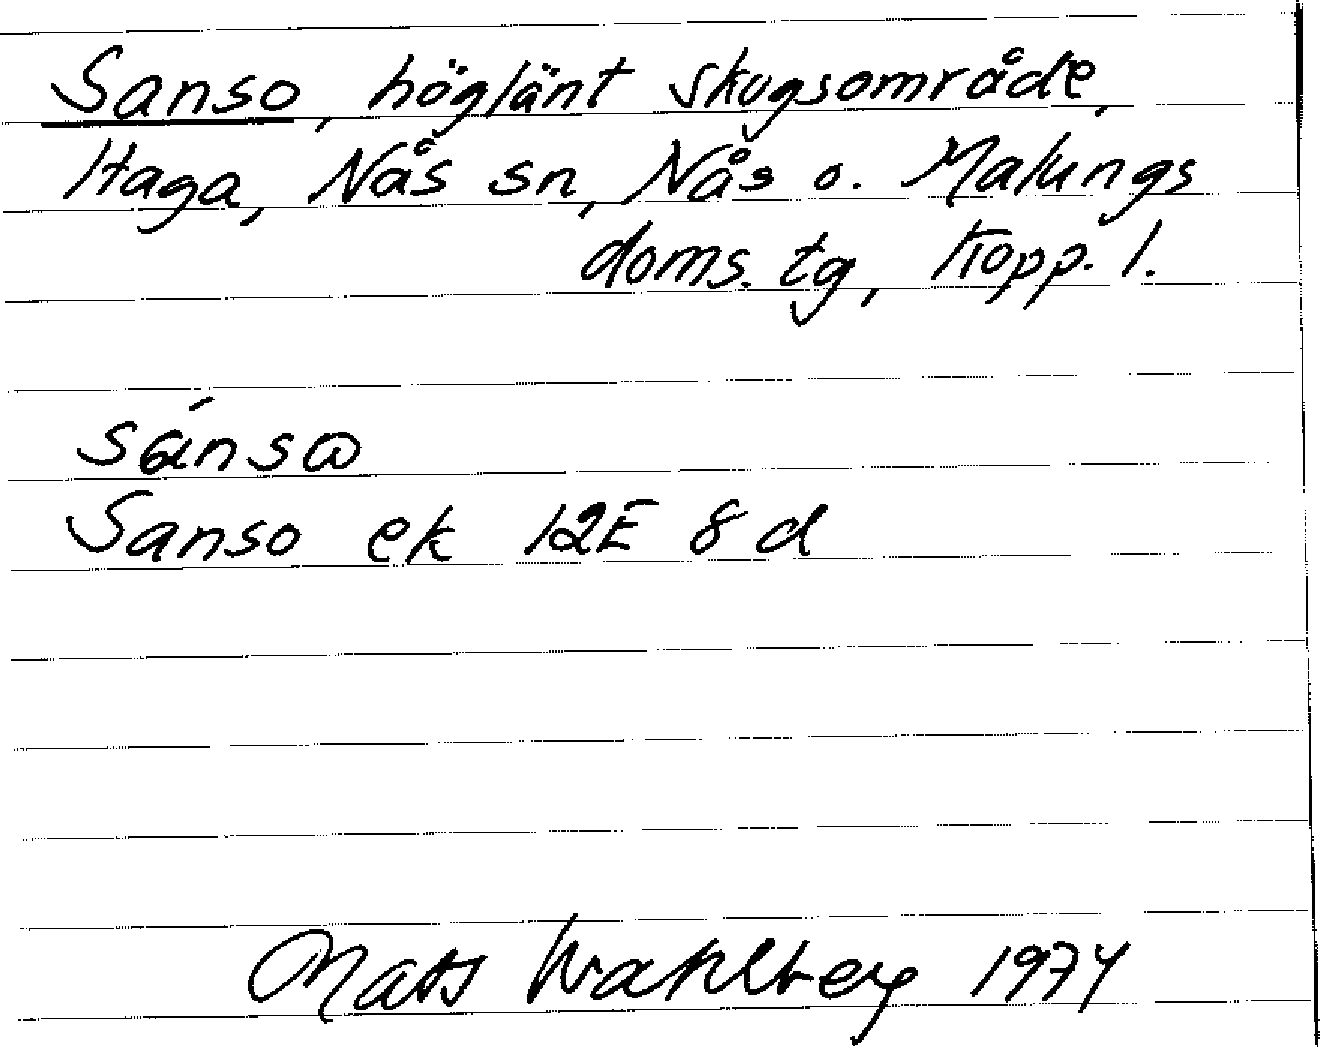 Sanso, höglänt skogsområde,
Haga, Nås sn, Nås o. Malungs
doms. tg, Kopp. l.
sánsɷ
Sanso ek 12E 8d
Mats Wahlberg 1974